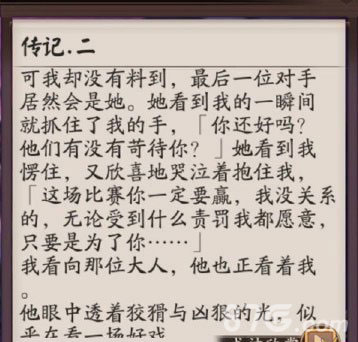 传记.二
可我却没有料到，最后一位对手
居然会是她。她看到我的一瞬间
就抓住了我的手，「你还好吗？
他们有没有苛待你？」她看到我
愣住，又欣喜地哭泣着抱住我，
「这场比赛你一定要赢，我没关系
的，无论受到什么责罚我都愿意，
只要是为了你……」
我看向那位大人，他也正看着我
。
他眼中透着狡猾与凶狠的光。似
乎在看一场好戏